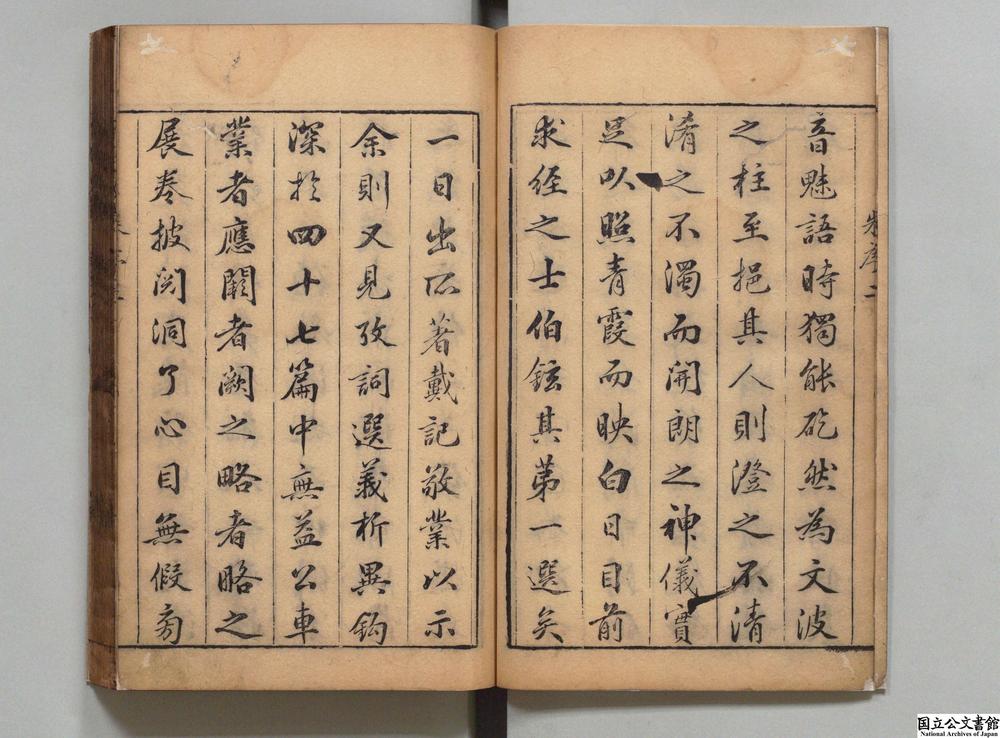 音魅語時獨能矻然為文波
之柱至挹其人則澄之不清
淆之不濁而開朗之神儀實
足以照青霞而映白日目前
求經之士伯鉉其苐一選矣
一日出所著戴記敬業以示
余則又見攷詞選義析異鈎
深於四十七篇中無益公車
業者應闕者闕之略者略之
展卷披閱洞了心目無假旁
国立公文書館
National Archives of Japan